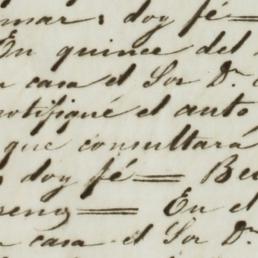 mar; doy fé=
En quince del
casa el Sor D.r
notifiqué el auto
que consultará
doy fé=
= En el
casa el Sor D.r